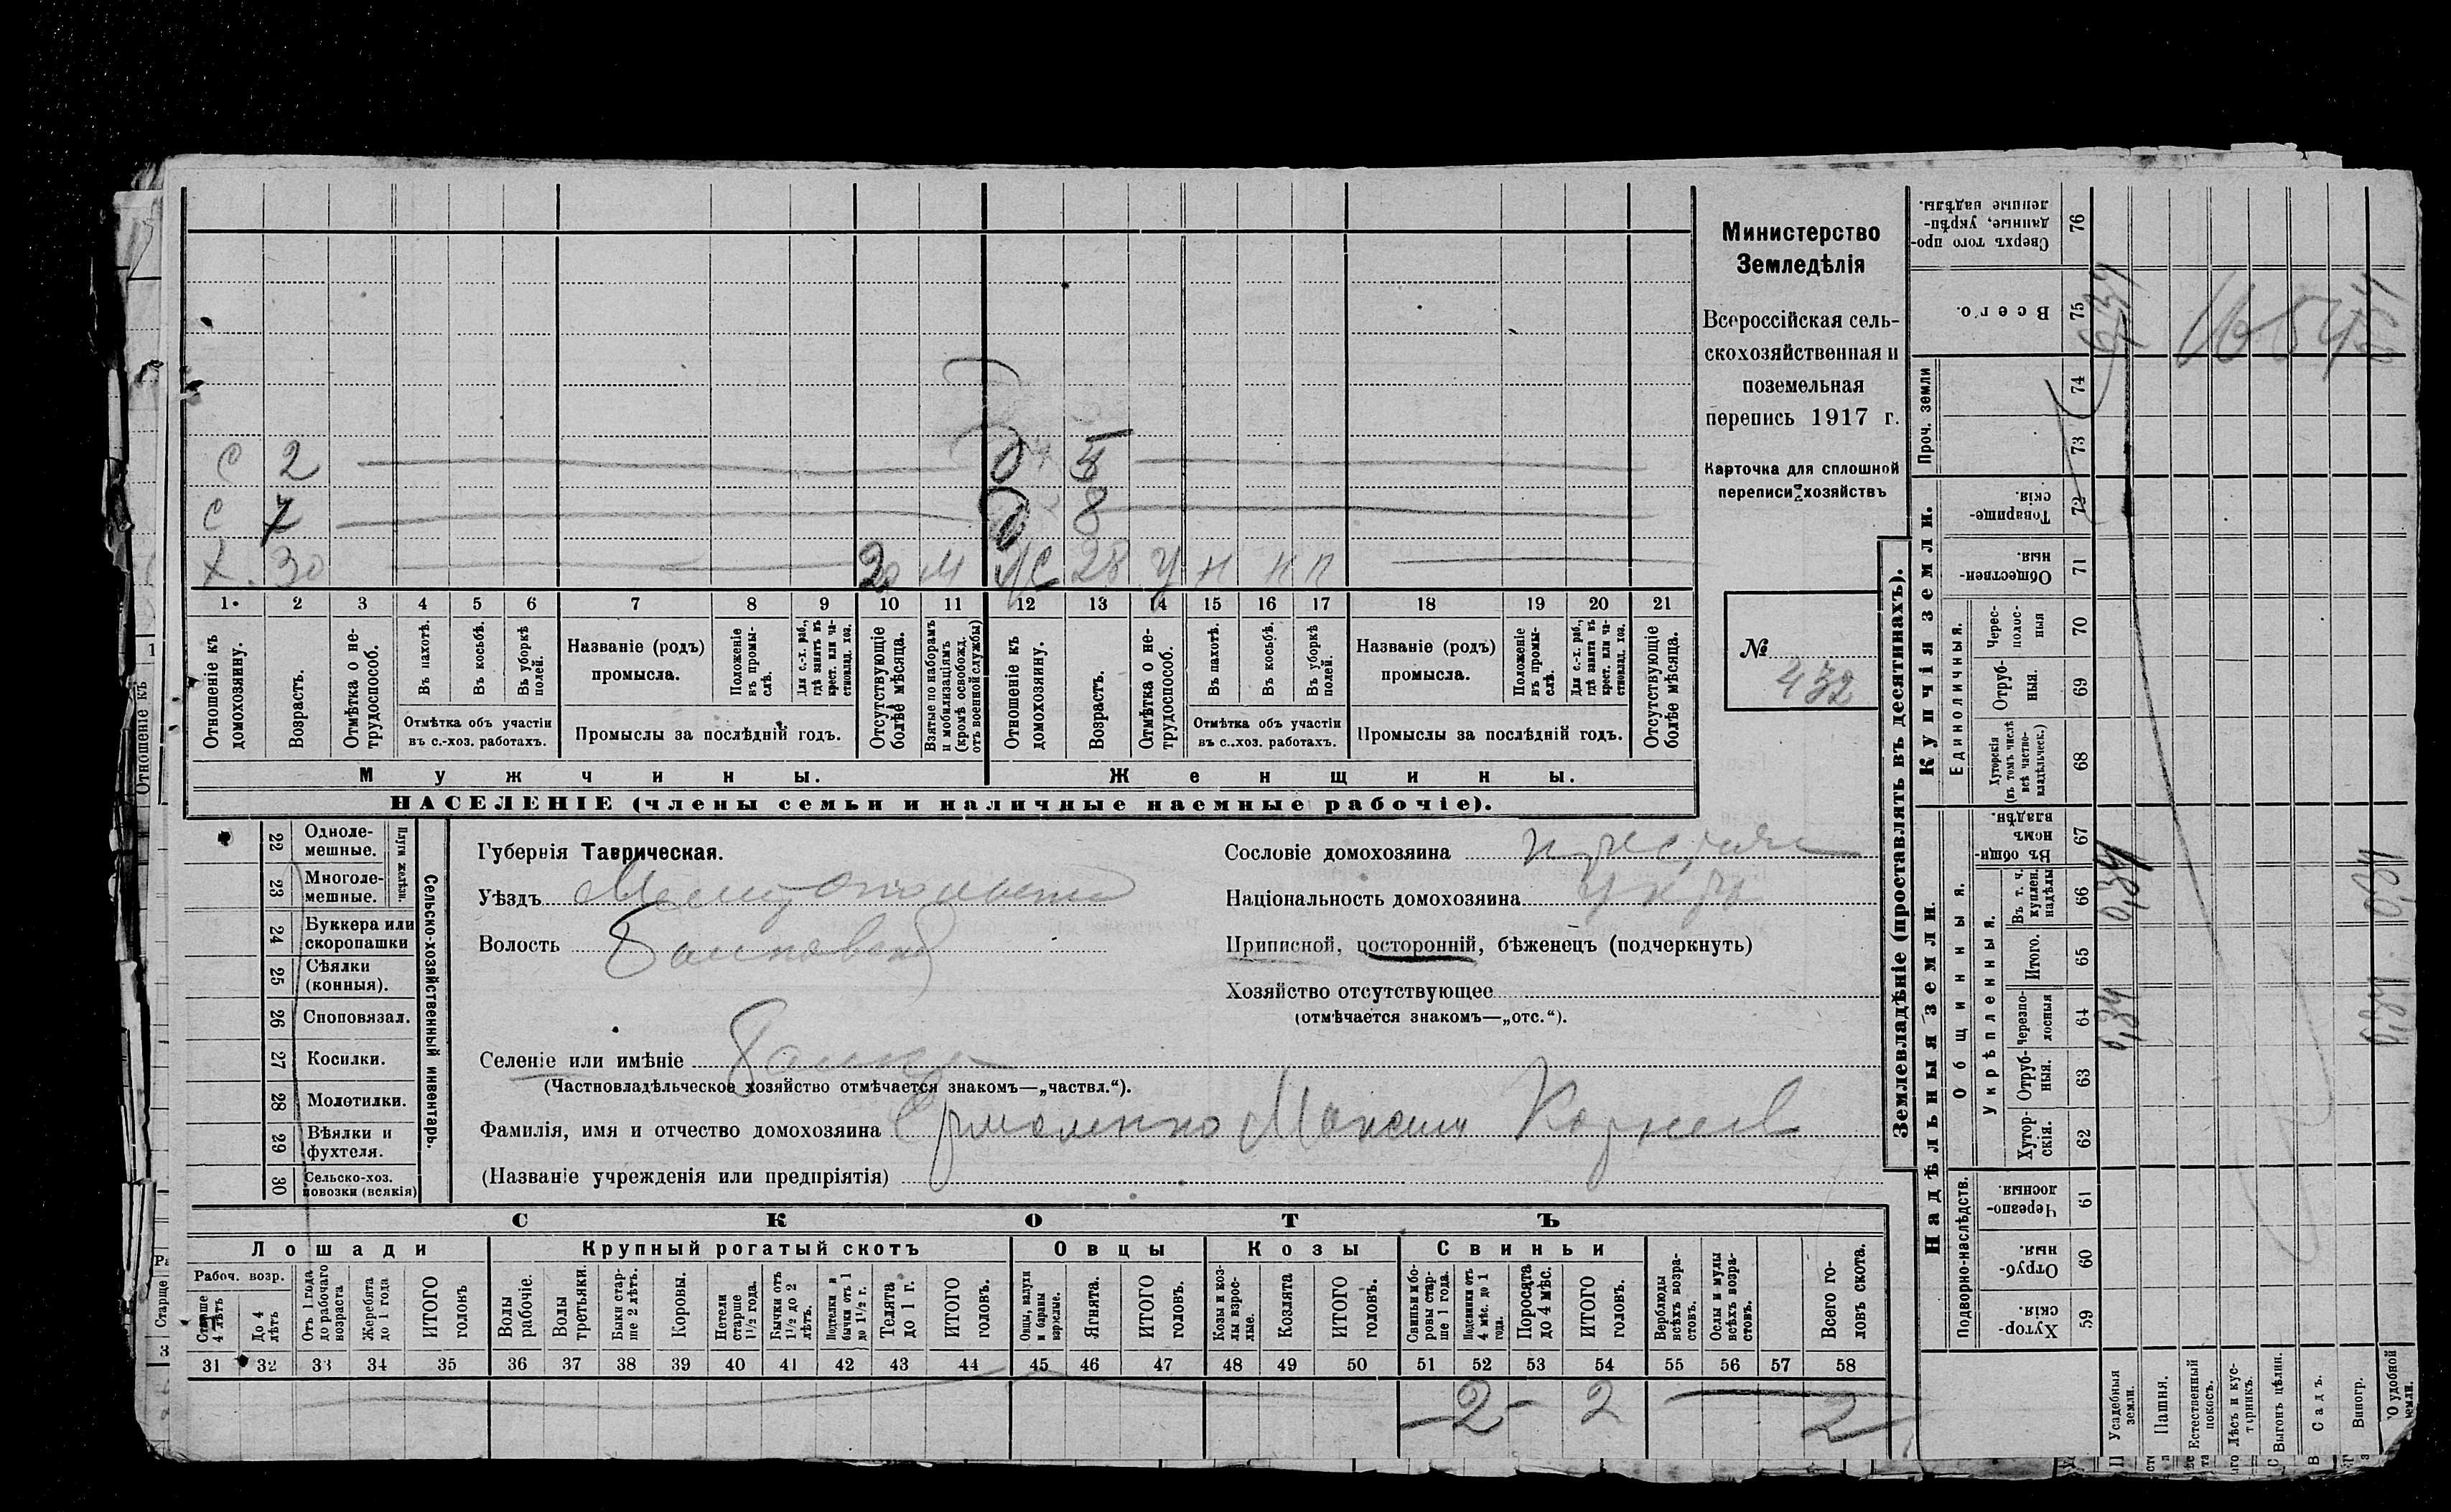 Министерство
Земледѣлія
Всероссійская сель-
скохозяйственная и
поземельная
перепись 1917 г.
Карточка для сплошной
переписи хозяйствъ
№ 432
с 2 д 5
с 7 д 8
х. 30 м ж 28 у н н п
1 2 3 4 5 6 7 8 9 10 11 12 13 14 15 16 17 18 19 20 21
Отношеніе къ домохозяину.
Возрастъ.
Отмѣтка о не-трудоспособ.
Въ пахотѣ.
Въ косьбѣ.
Въ уборкѣ полей.
Отмѣтка объ участіи въ с.-хоз. работахъ.
Названіе (родъ) промысла.
Положеніе въ промы-слѣ.
Для с.-х. раб., гдѣ занятъ въ крест. или ча-стновлад. хоз.
Промыслы за послѣдній годъ.
Отсутствующіе болѣе мѣсяца.
Взятые по наборамъ и мобилизаціямъ (кромѣ освобожд. отъ военной службы)
Отношеніе къ домохозяину.
Возрастъ.
Отмѣтка о не-трудоспособ.
Въ пахотѣ.
Въ косьбѣ.
Въ уборкѣ полей.
Отмѣтка объ участіи въ с.-хоз. работахъ.
Названіе (родъ) промысла.
Положеніе въ промы-слѣ.
Для с.-х. раб., гдѣ занята въ крест. или ча-стновлад. хоз.
Промыслы за послѣдній годъ.
Отсутствующіе болѣе мѣсяца.
Мужчины. Женщины.
НАСЕЛЕНІЕ (члены семьи и наличные наемные рабочіе).
22 Одноле-мешные.
23 Многоле-мешные.
Плуги желѣзн.
24 Буккера или скоропашки
25 Сѣялки (конныя).
26 Сноповязал.
27 Косилки.
28 Молотилки.
29 Вѣялки и фухтеля.
30 Сельско-хоз. повозки (всякія)
Сельско-хозяйственный инвентарь.
Губернія Таврическая.
Уѣздъ Мелитопольскій
Волость
Селеніе или имѣніе
(Частновладѣльческое хозяйство отмѣчается знакомъ—„частвл.“).
Фамилія, имя и отчество домохозяина Ермоленко Максим Корнеев
(Названіе учрежденія или предпріятія)
Сословіе домохозяина крестян
Національность домохозяина укр
Приписной, посторонній, бѣженецъ (подчеркнуть)
Хозяйство отсутствующее
(отмѣчается знакомъ—„отс.“).
СКОТЪ
Лошади Крупный рогатый скотъ Овцы Козы Свиньи
Рабоч. возр.
Старше 4 лѣтъ
До 4 лѣтъ
Отъ 1 года до рабочаго возраста
Жеребята до 1 года
ИТОГО головъ
Волы рабочіе.
Волы третьяки.
Быки стар-ше 2 лѣтъ.
Коровы.
Нетели старше 1½ года.
Бычки отъ 1½ до 2 лѣтъ.
Подтелки и бычки отъ 1 до 1½ г.
Телята до 1 г.
ИТОГО головъ.
Овцы, валухи и бараны взрослые.
Ягнята.
ИТОГО головъ.
Козы и коз-лы взрос-лые.
Козлята
ИТОГО головъ.
Свиньи и бо-ровы стар-ше 1 года.
Подсвинки отъ 4 мѣс. до 1 года.
Поросята до 4 мѣс.
ИТОГО головъ.
Верблюды всѣхъ возра-стовъ.
Ослы и мулы всѣхъ возра-стовъ.
Всего го-ловъ скота.
31 32 33 34 35 36 37 38 39 40 41 42 43 44 45 46 47 48 49 50 51 52 53 54 55 56 57 58
2 2 2
Землевладѣніе (проставлять въ десятинахъ).
Надѣльныя земли. Купчія земли. Проч. земли
Подворно-наслѣдств. Общинныя. Укрѣпленныя. Единоличныя.
59 Хутор-скія.
60 Отруб-ныя.
61 Черезпо-лосныя.
62 Хутор-скія.
63 Отруб-ныя.
64 Черезпо-лосныя 0,34
65 Итого.
66 Въ т. ч. куплен. надѣлы 0,34
67 Въ общин-номъ владѣн.
68 Хуторскія (въ томъ числѣ всѣ частно-владѣльческ.)
69 Отруб-ныя.
70 Черес-полос-ныя
71 Обществен-ныя.
72 Товарище-скія.
73
74
75 Всего. 0,34
76 Сверхъ того про-данные, укрѣп-ленные надѣлы.
Усадебныя земли.
Пашня.
Естественный покосъ.
Лѣсъ и кус-тарникъ.
Выгонъ цѣлин.
Садъ.
Виногр.
0,34 0,34